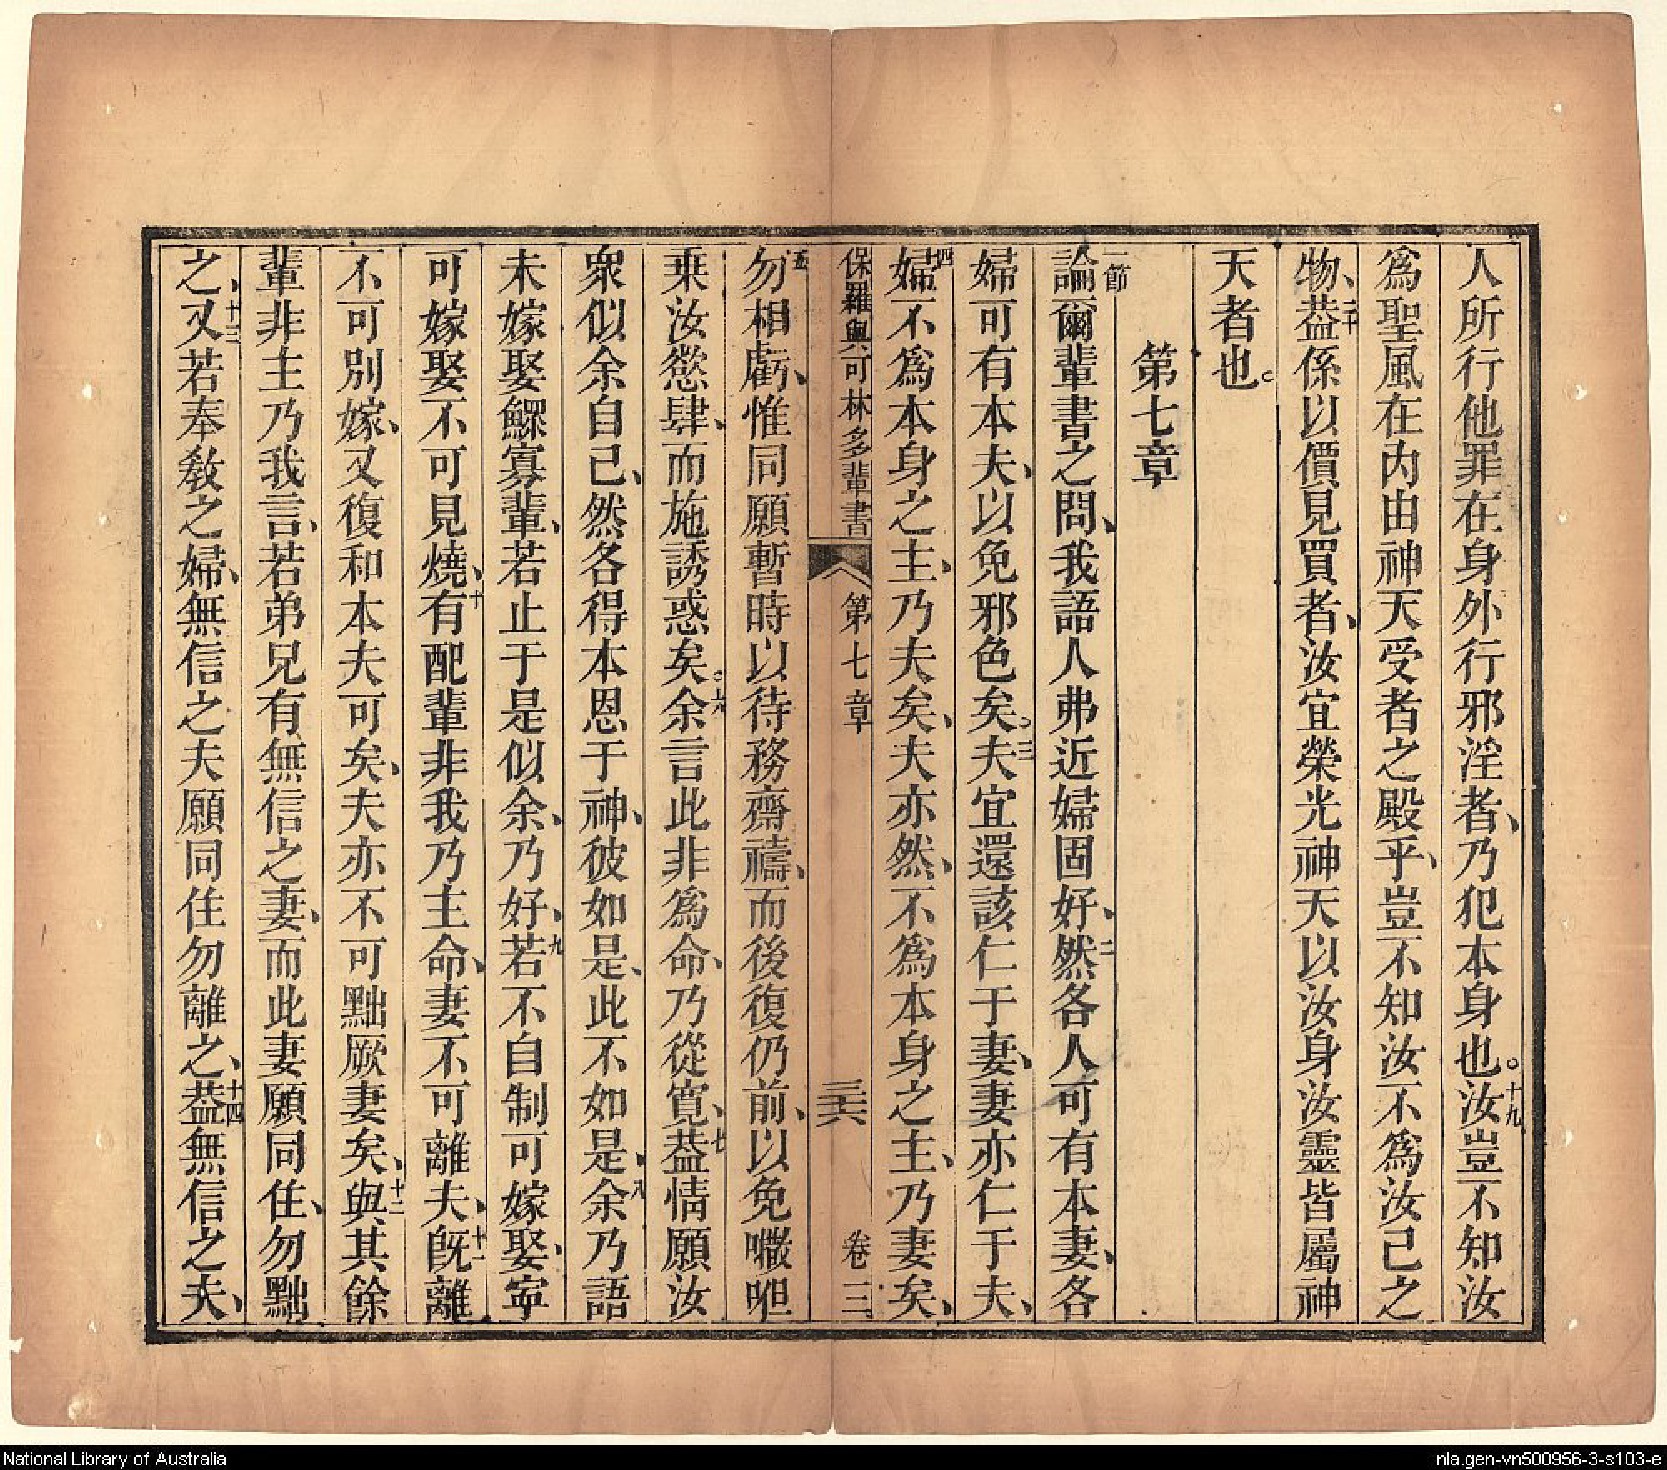 人所行他罪在身外行邪淫者、乃犯本身也。十九汝豈不知汝
爲聖風在內由神天受者之殿乎、豈不知汝不爲汝己之
物、二十葢係以價見買者、汝宜榮光神天以汝身汝靈皆屬神
天者也。
第七章
一節論爾輩書之問、我語人弗近婦固好、二然各人可有本妻、各
婦可有本夫、以免邪色矣。三夫宜還該仁于妻、妻亦仁于夫、
四婦不爲本身之主、乃夫矣、夫亦然、不爲本身之主、乃妻矣、
保羅與可林多輩書 第七章 三十六 卷三
五勿相虧、惟同願暫時以待務齋禱、而後復仍前、以免𠹌呾
乘汝慾肆、而施誘惑矣。六余言此非爲命、乃從寬、七葢情願汝
衆似余自己、然各得本恩于神、彼如是、此不如是、八余乃語
未嫁娶鰥寡輩、若止于是似余、乃好、九若不自制可嫁娶、寕
可嫁娶不可見燒、十有配輩非我乃主命、妻不可離夫、十一旣離
不可別嫁、又復和本夫可矣、夫亦不可黜厥妻矣、十二與其餘
輩非主乃我言、若弟兄有無信之妻、而此妻願同住、勿黜
之、十三又若奉教之婦、無信之夫願同住勿離之、十四葢無信之夫、
National Library of Australia
nla.gen-vn500956-3-s103-e